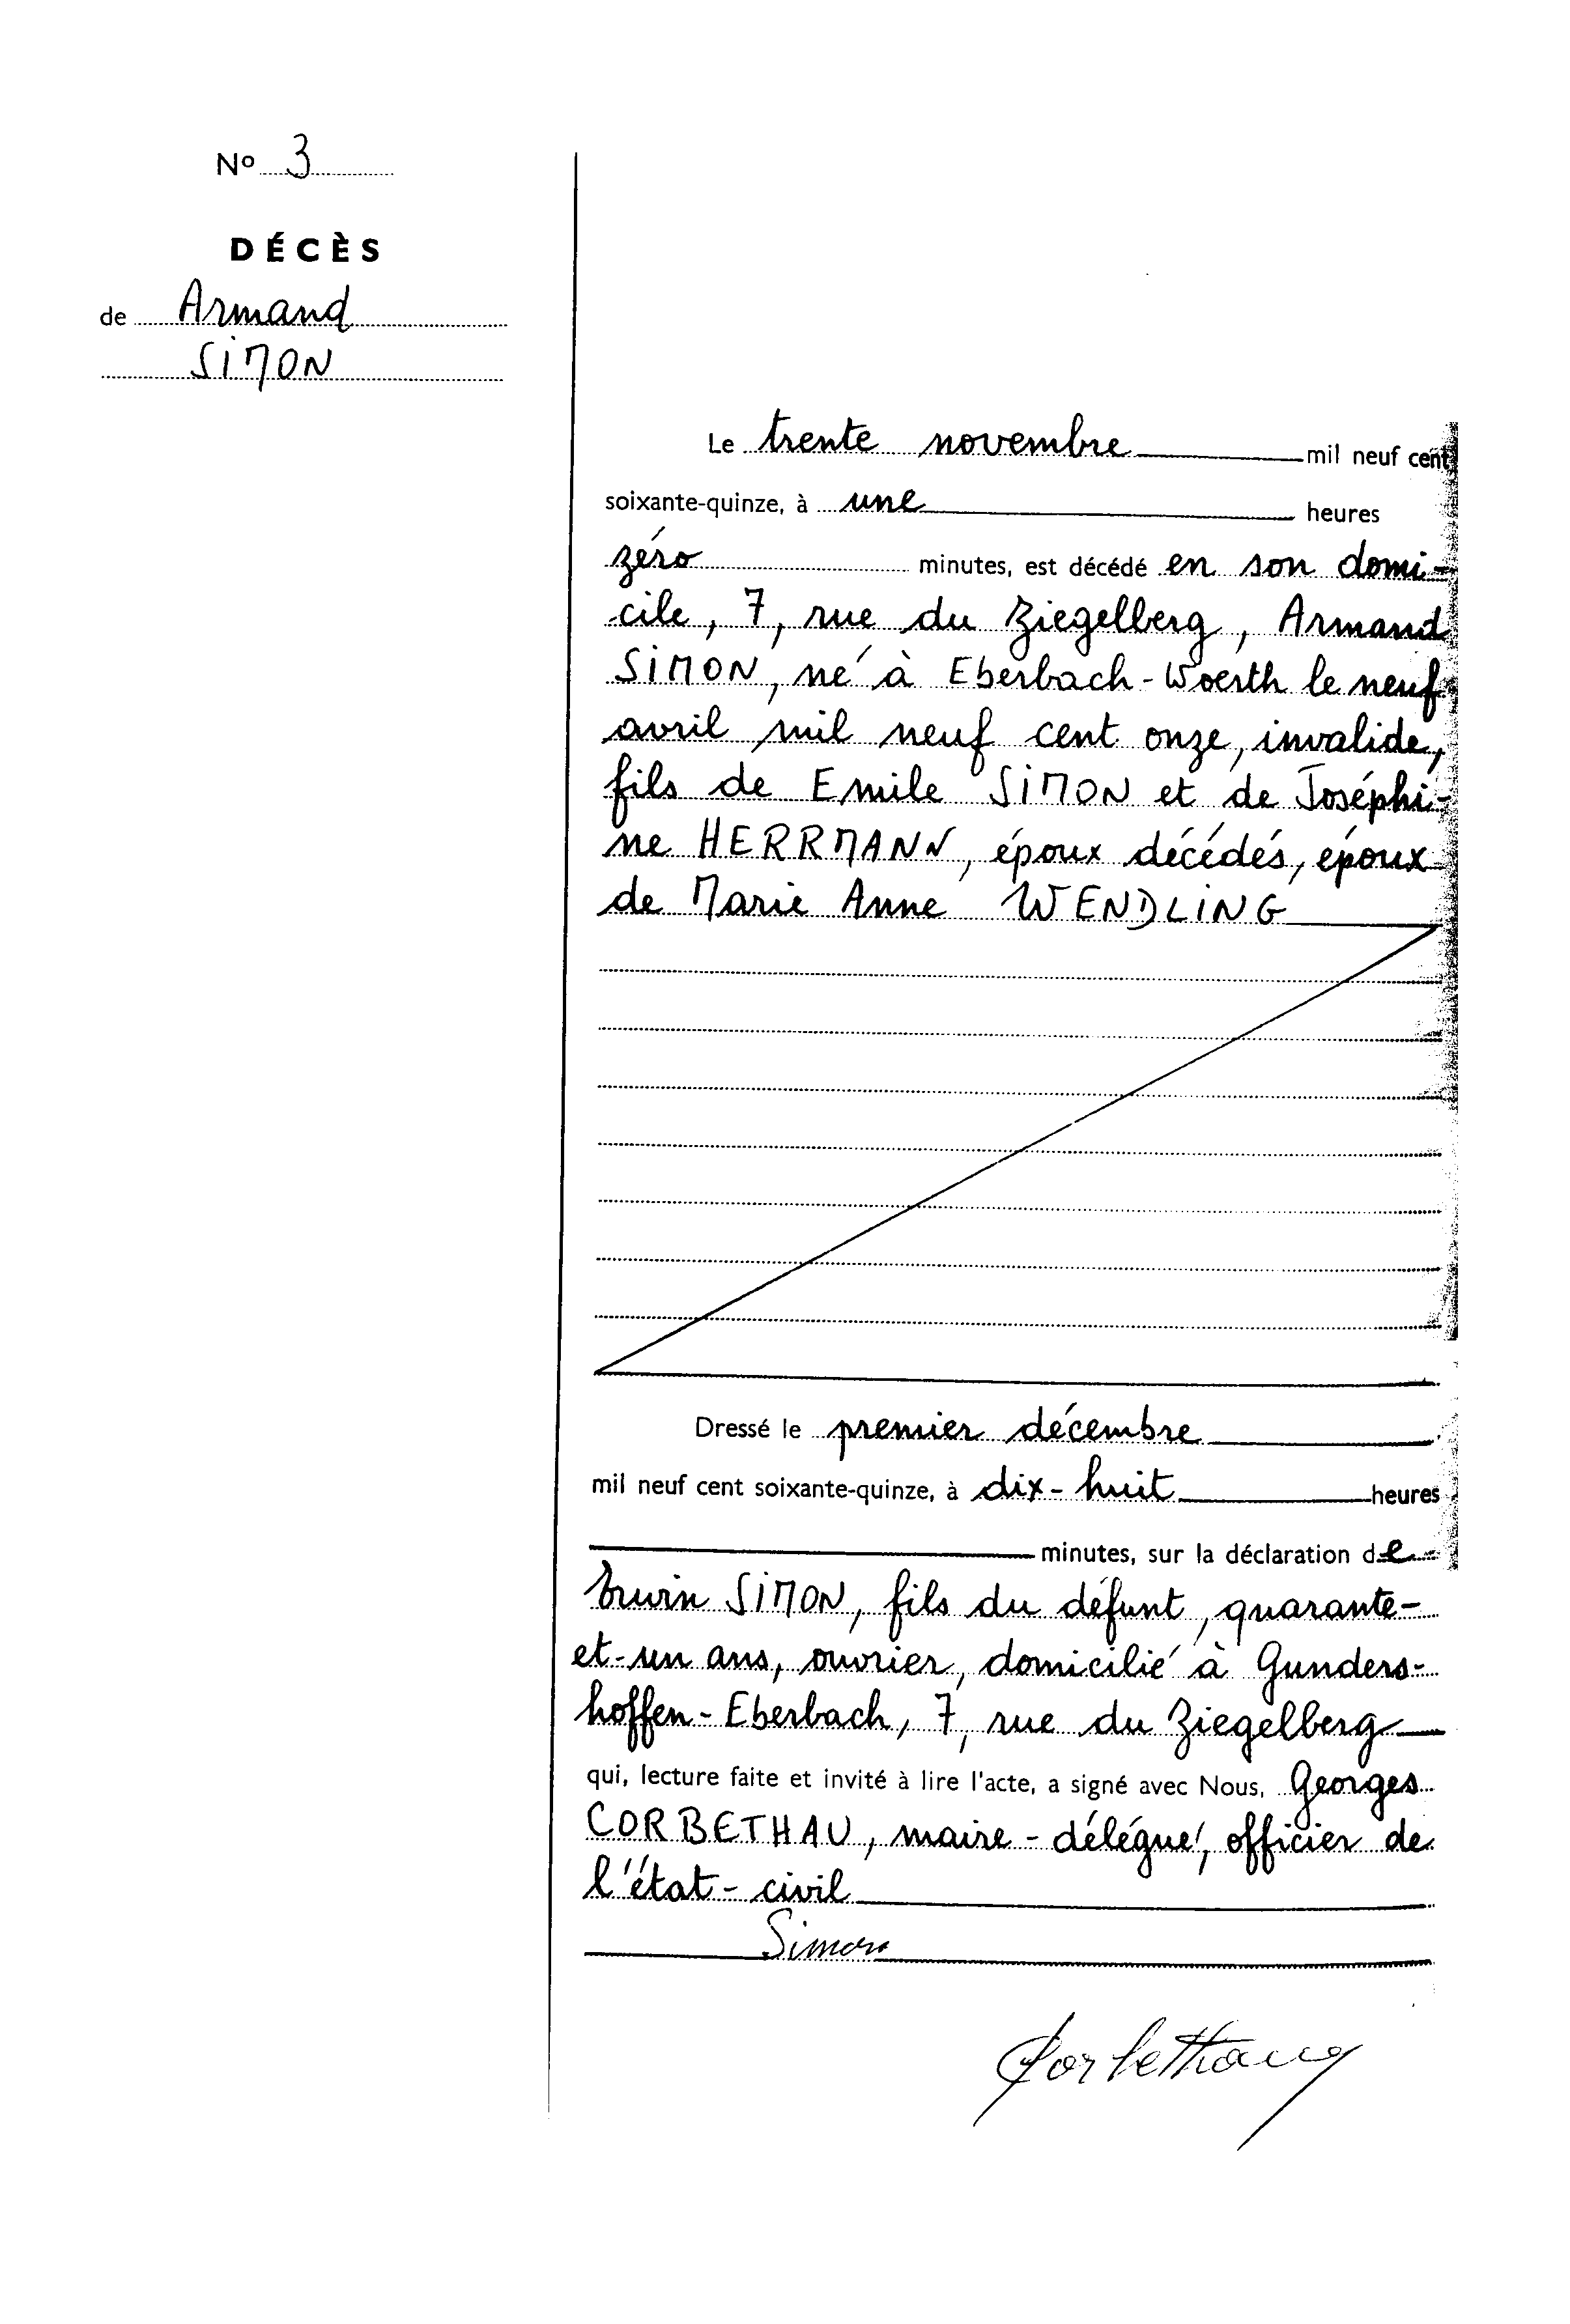 Nº 3
DÉCÈS
de Armand
SIMON
Le trente novembre mil neuf cent
soixante-quinze, à une heures
zéro minutes, est décédé en son domi-
cile, 7, rue du Ziegelberg, Armand
SIMON, né à Eberbach-Woerth le neuf
avril mil neuf cent onze, invalide,
fils de Emile SIMON et de Joséphi-
ne HERRMANN, époux décédés, époux
de Marie Anne WENDLING
Dressé le premier décembre
mil neuf cent soixante-quinze, à dix-huit heures
minutes, sur la déclaration de
SIMON, fils du défunt, quarante-
et-un ans, ouvrier, domicilié à Gunders-
hoffen-Eberbach, 7, rue du Ziegelberg
qui, lecture faite et invité à lire l'acte, a signé avec Nous, Georges
CORBETHAU, maire-délégué, officier de
l'état-civil
Simon
Corbethau